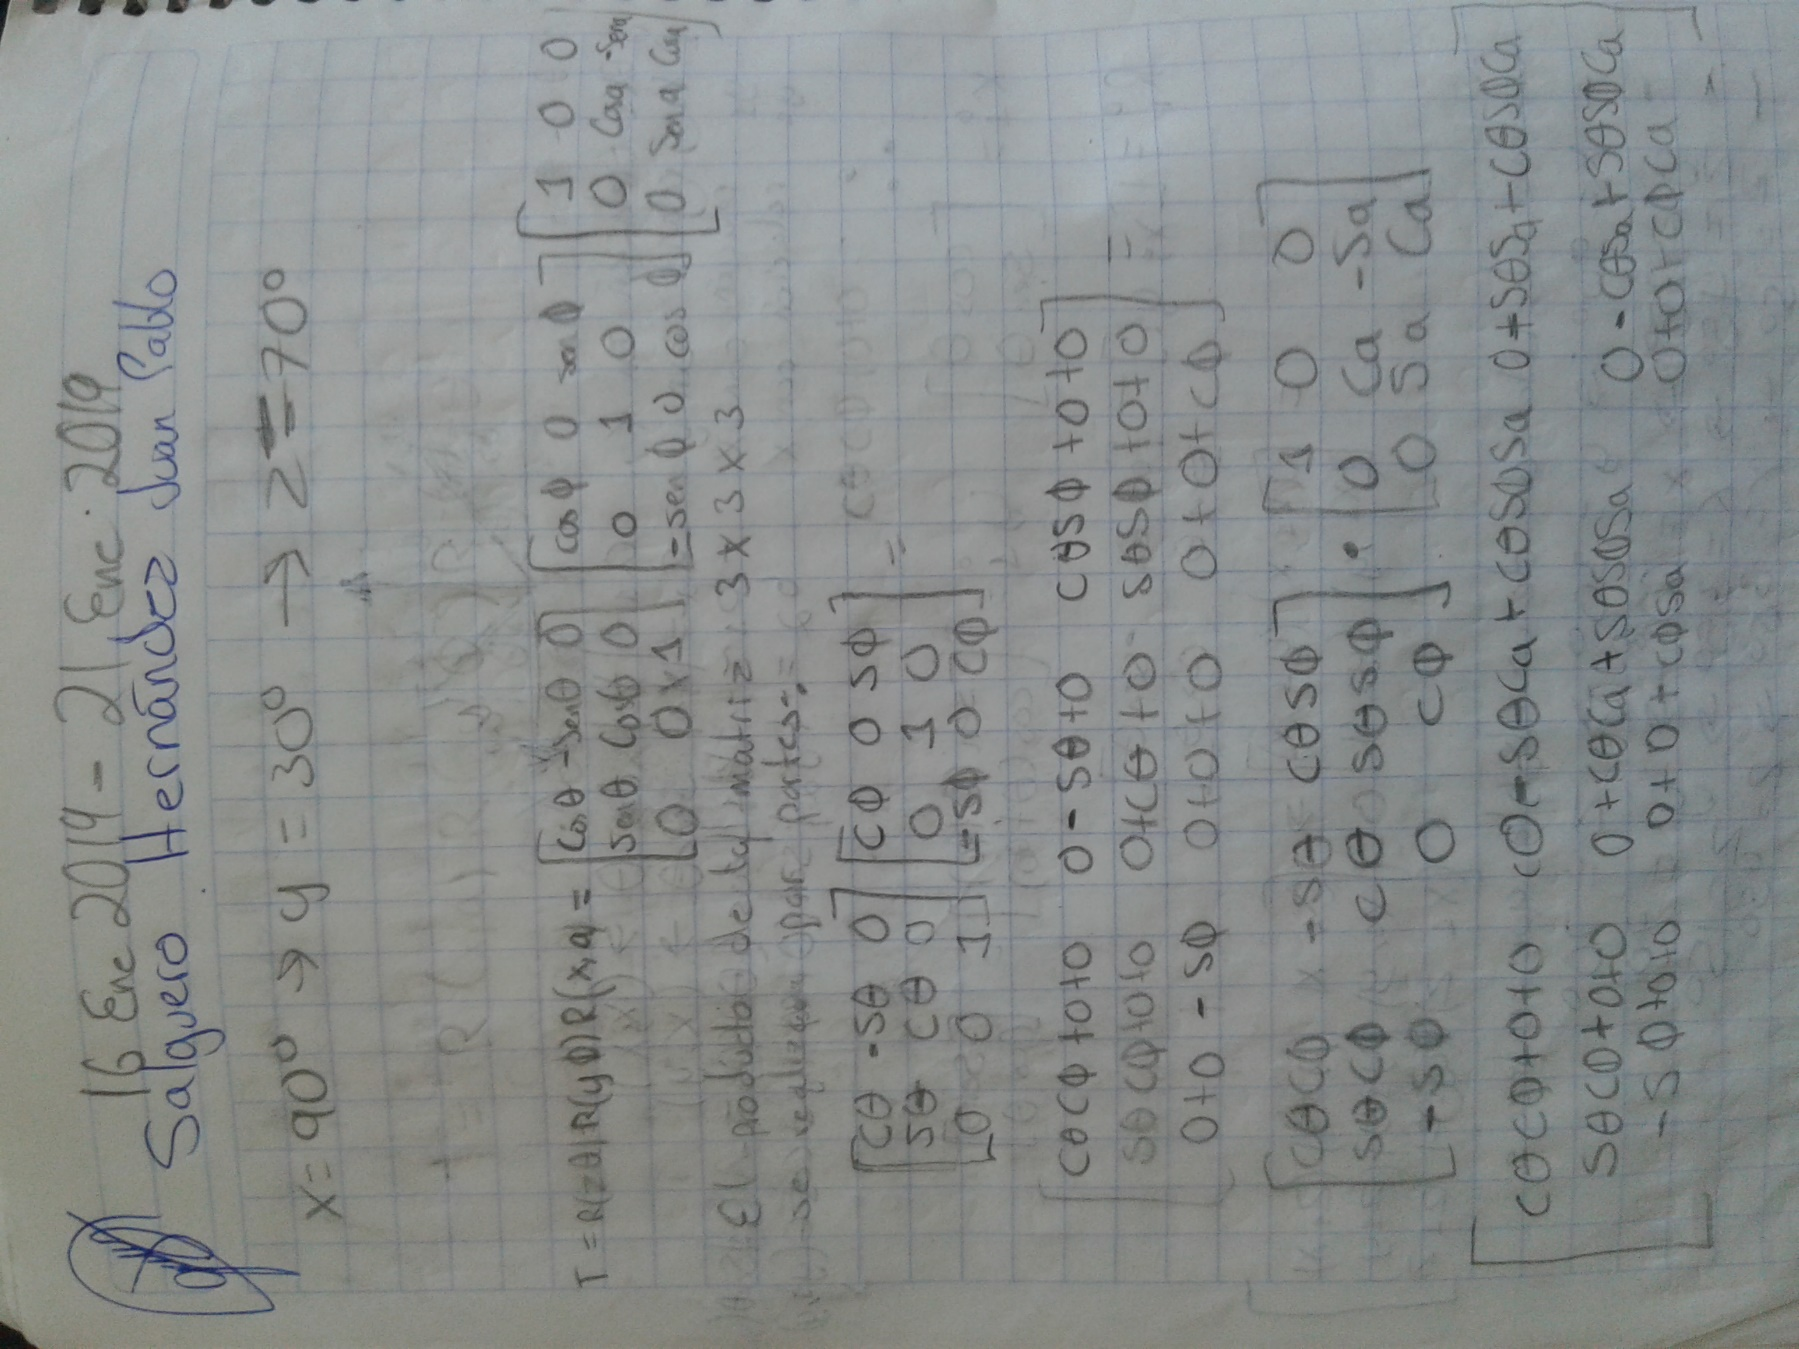 16 Enc 2019 - 21 Enc. 2019
Salguero Hernández Juan Pablo
x=90° → y=30° → z=-70°
T = R(zθ)R(yφ)R(x,a) = [cosθ -senθ 0] [cosφ 0 senφ] [1 0 0]
senθ cosθ 0 0 1 0 0 Cosa -Sena
0 0 1 -senφ 0 cosφ 0 Sena Cosa
El producto de la matriz 3x3x3
se realiza por partes:
[Cθ -Sθ 0] [Cφ 0 Sφ] =
Sθ Cθ 0 0 1 0
0 0 1 -Sφ 0 Cφ
CθCφ+0+0 0-Sθ+0 CθSφ+0+0
SθCφ+0+0 0+Cθ+0 SθSφ+0+0 =
0+0-Sφ 0+0+0 0+0+Cφ
[CθCφ -Sθ CθSφ] [1 0 0]
SθCφ Cθ SθSφ · 0 Ca -Sa
-Sφ 0 Cφ 0 Sa Ca
CθCφ+0+0 0-SθCa+CθSφSa 0+SθSa+CθSφCa
SθCφ+0+0 0+CθCa+SθSφSa 0-CθSa+SθSφCa
-Sφ+0+0 0+0+CφSa 0+0+CφCa